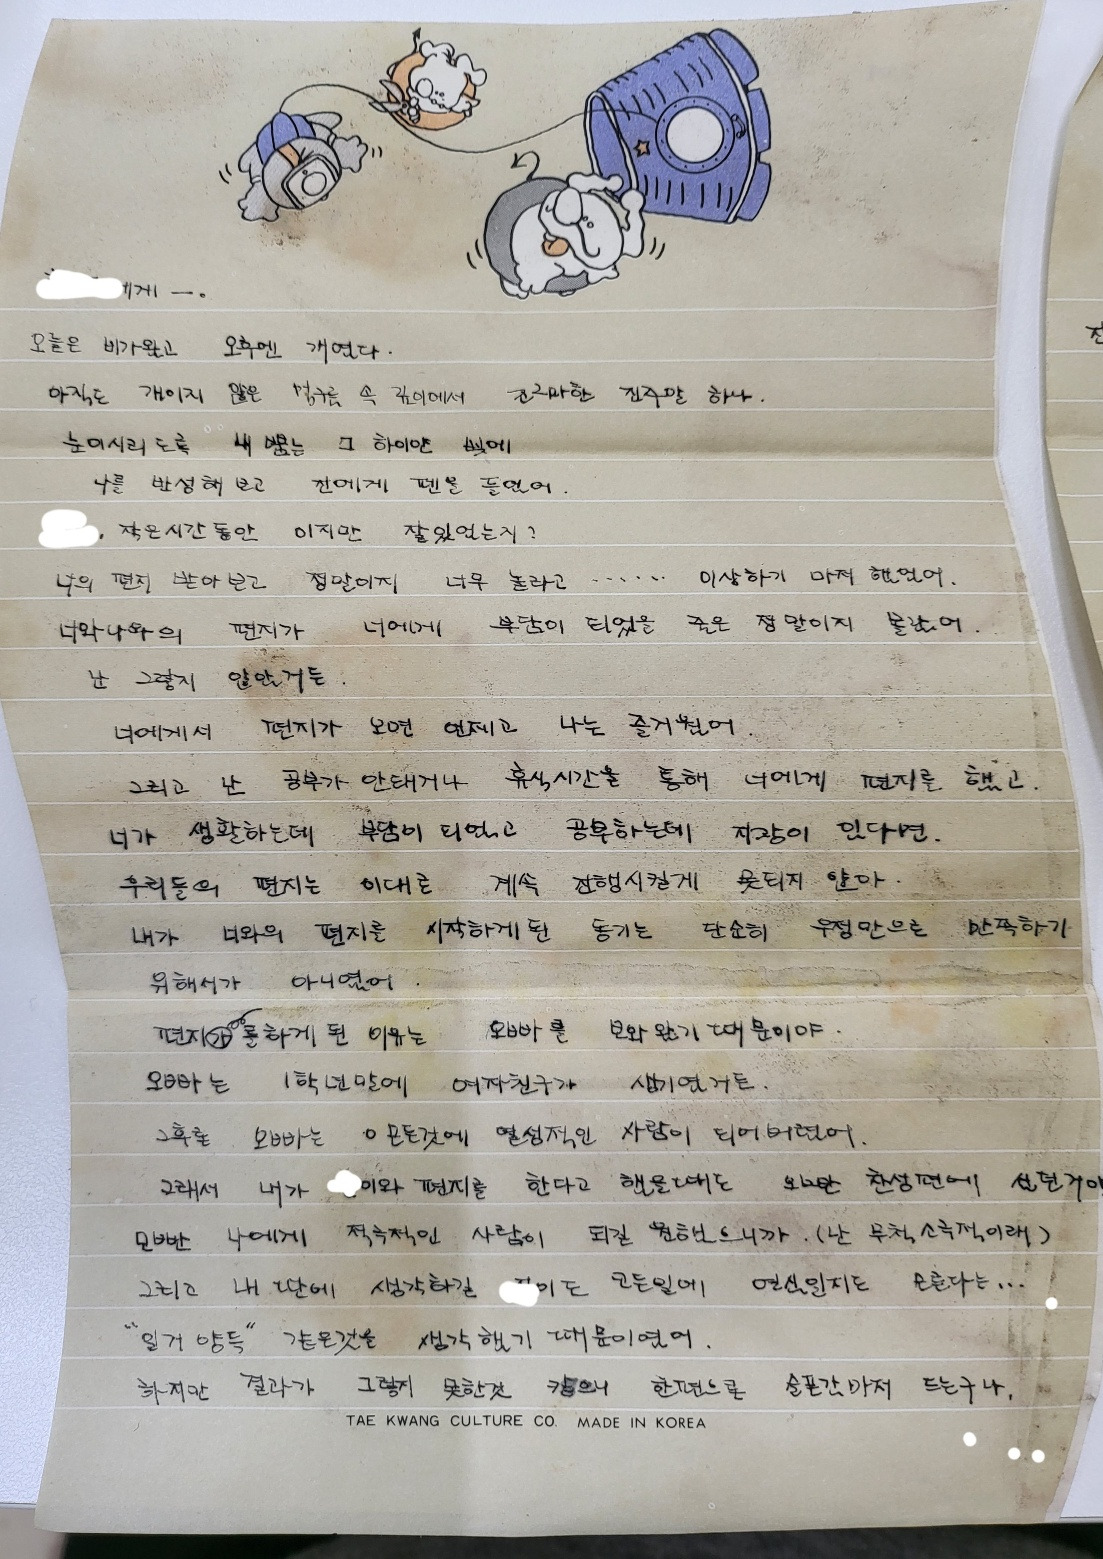 에게 ㅡ.
오늘은 비가왔고 오후엔 개였다.
아직도 개이지 않은 먹구름 속 깊이에서 조그마한 진주알 하나.
눈이시리도록 내 뿜는 그 하이얀 빛에
나를 반성해 보고 전에게 펜을 들었어.
. 작은시간동안 이지만 잘있었는지?
너의 편지 받아보고 정말이지 너무 놀라고 ······ 이상하기 마저 했었어.
너와나와의 편지가 너에게 부담이 되었을 줄은 정말이지 몰랐어.
난 그렇지 않았거든.
너에게서 편지가 오면 언제고 나는 즐거웠어.
그리고 난 공부가 안돼거나 휴식시간을 통해 너에게 편지를 했고.
너가 생활하는데 부담이 되었고 공부하는데 지장이 있다면.
우리들의 편지는 이대로 계속 진행시킬게 못되지 않아.
내가 너와의 편지를 시작하게 된 동기는 단순히 우정만으로 만족하기
위해서가 아니였어.
편지를하게 된 이유는 오빠를 보와 왔기 때문이야.
오빠는 1학년말에 여자친구가 생기였거든.
그후로 오빠는 모든것에 열성적인 사람이 되어버렸어.
그래서 내가 이와 편지를 한다고 했을때도 오빤 찬성편에 섰던거야
오빤 나에게 적극적인 사람이 되길 원했으니까. (난 무척 소극적이래)
그리고 내 딴에 생각하길 이도 모든일에 열심인지도 모른다는...
"일거 양득" 같은것을 생각했기 때문이였어.
하지만 결과가 그렇지 못한것 한편으로 슬픈감마저 드는구나.
TAE KWANG CULTURE CO. MADE IN KOREA